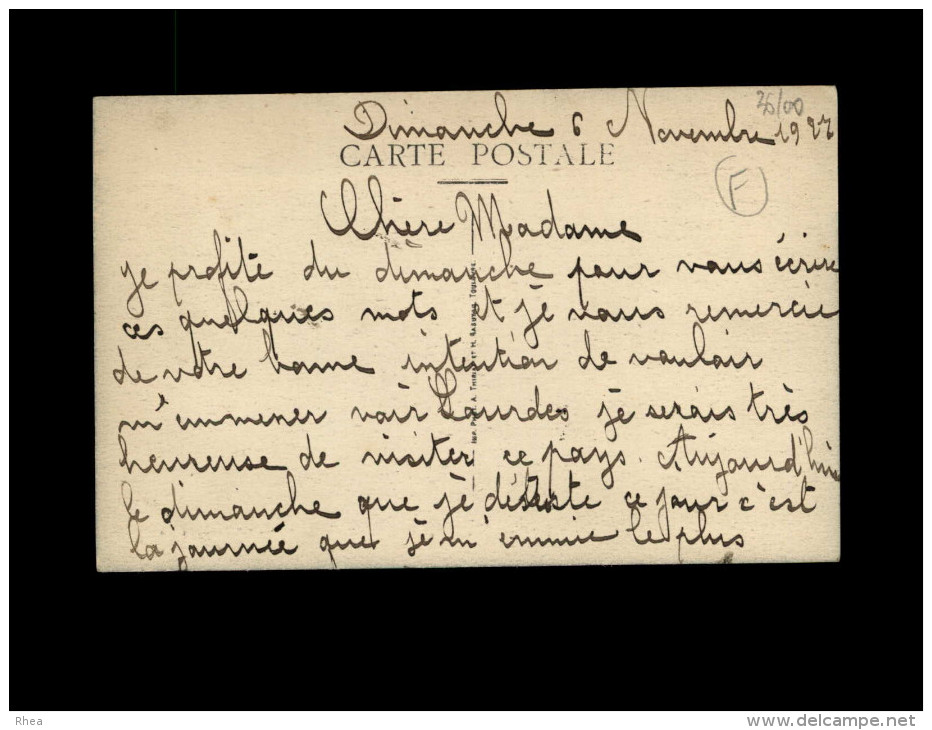 26/00
Dimanche 6 Novembre 1927
CARTE POSTALE
F
Chère Madame
je profite du dimanche pour vous écrire
ces quelques mots et je vous remercie
de votre bonne intention de vouloir
m'emmener voir Lourdes je serais très
heureuse de visiter ce pays. Aujourd'hui
le dimanche que je déteste ce jour c'est
la journée que je m'ennuie le plus
Imp. Phot. A. Thiriat et H. Basuyau, Toulouse
Rhea
www.delcampe.net